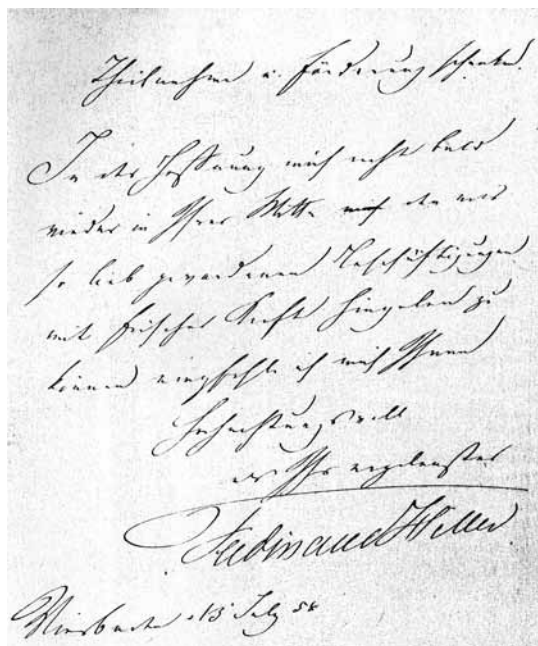 Theilnahme u. Förderung schenken.
In der Hoffnung mich recht bald
wieder in Ihrer Mitte den mir
so lieb gewordenen Beschäftigungen
mit frischer Kraft hingeben zu
können empfehle ich mich Ihnen
Hochachtungsvoll
als Ihr ergebenster
Ferdinand Hiller.
Wiesbaden 13 July 58